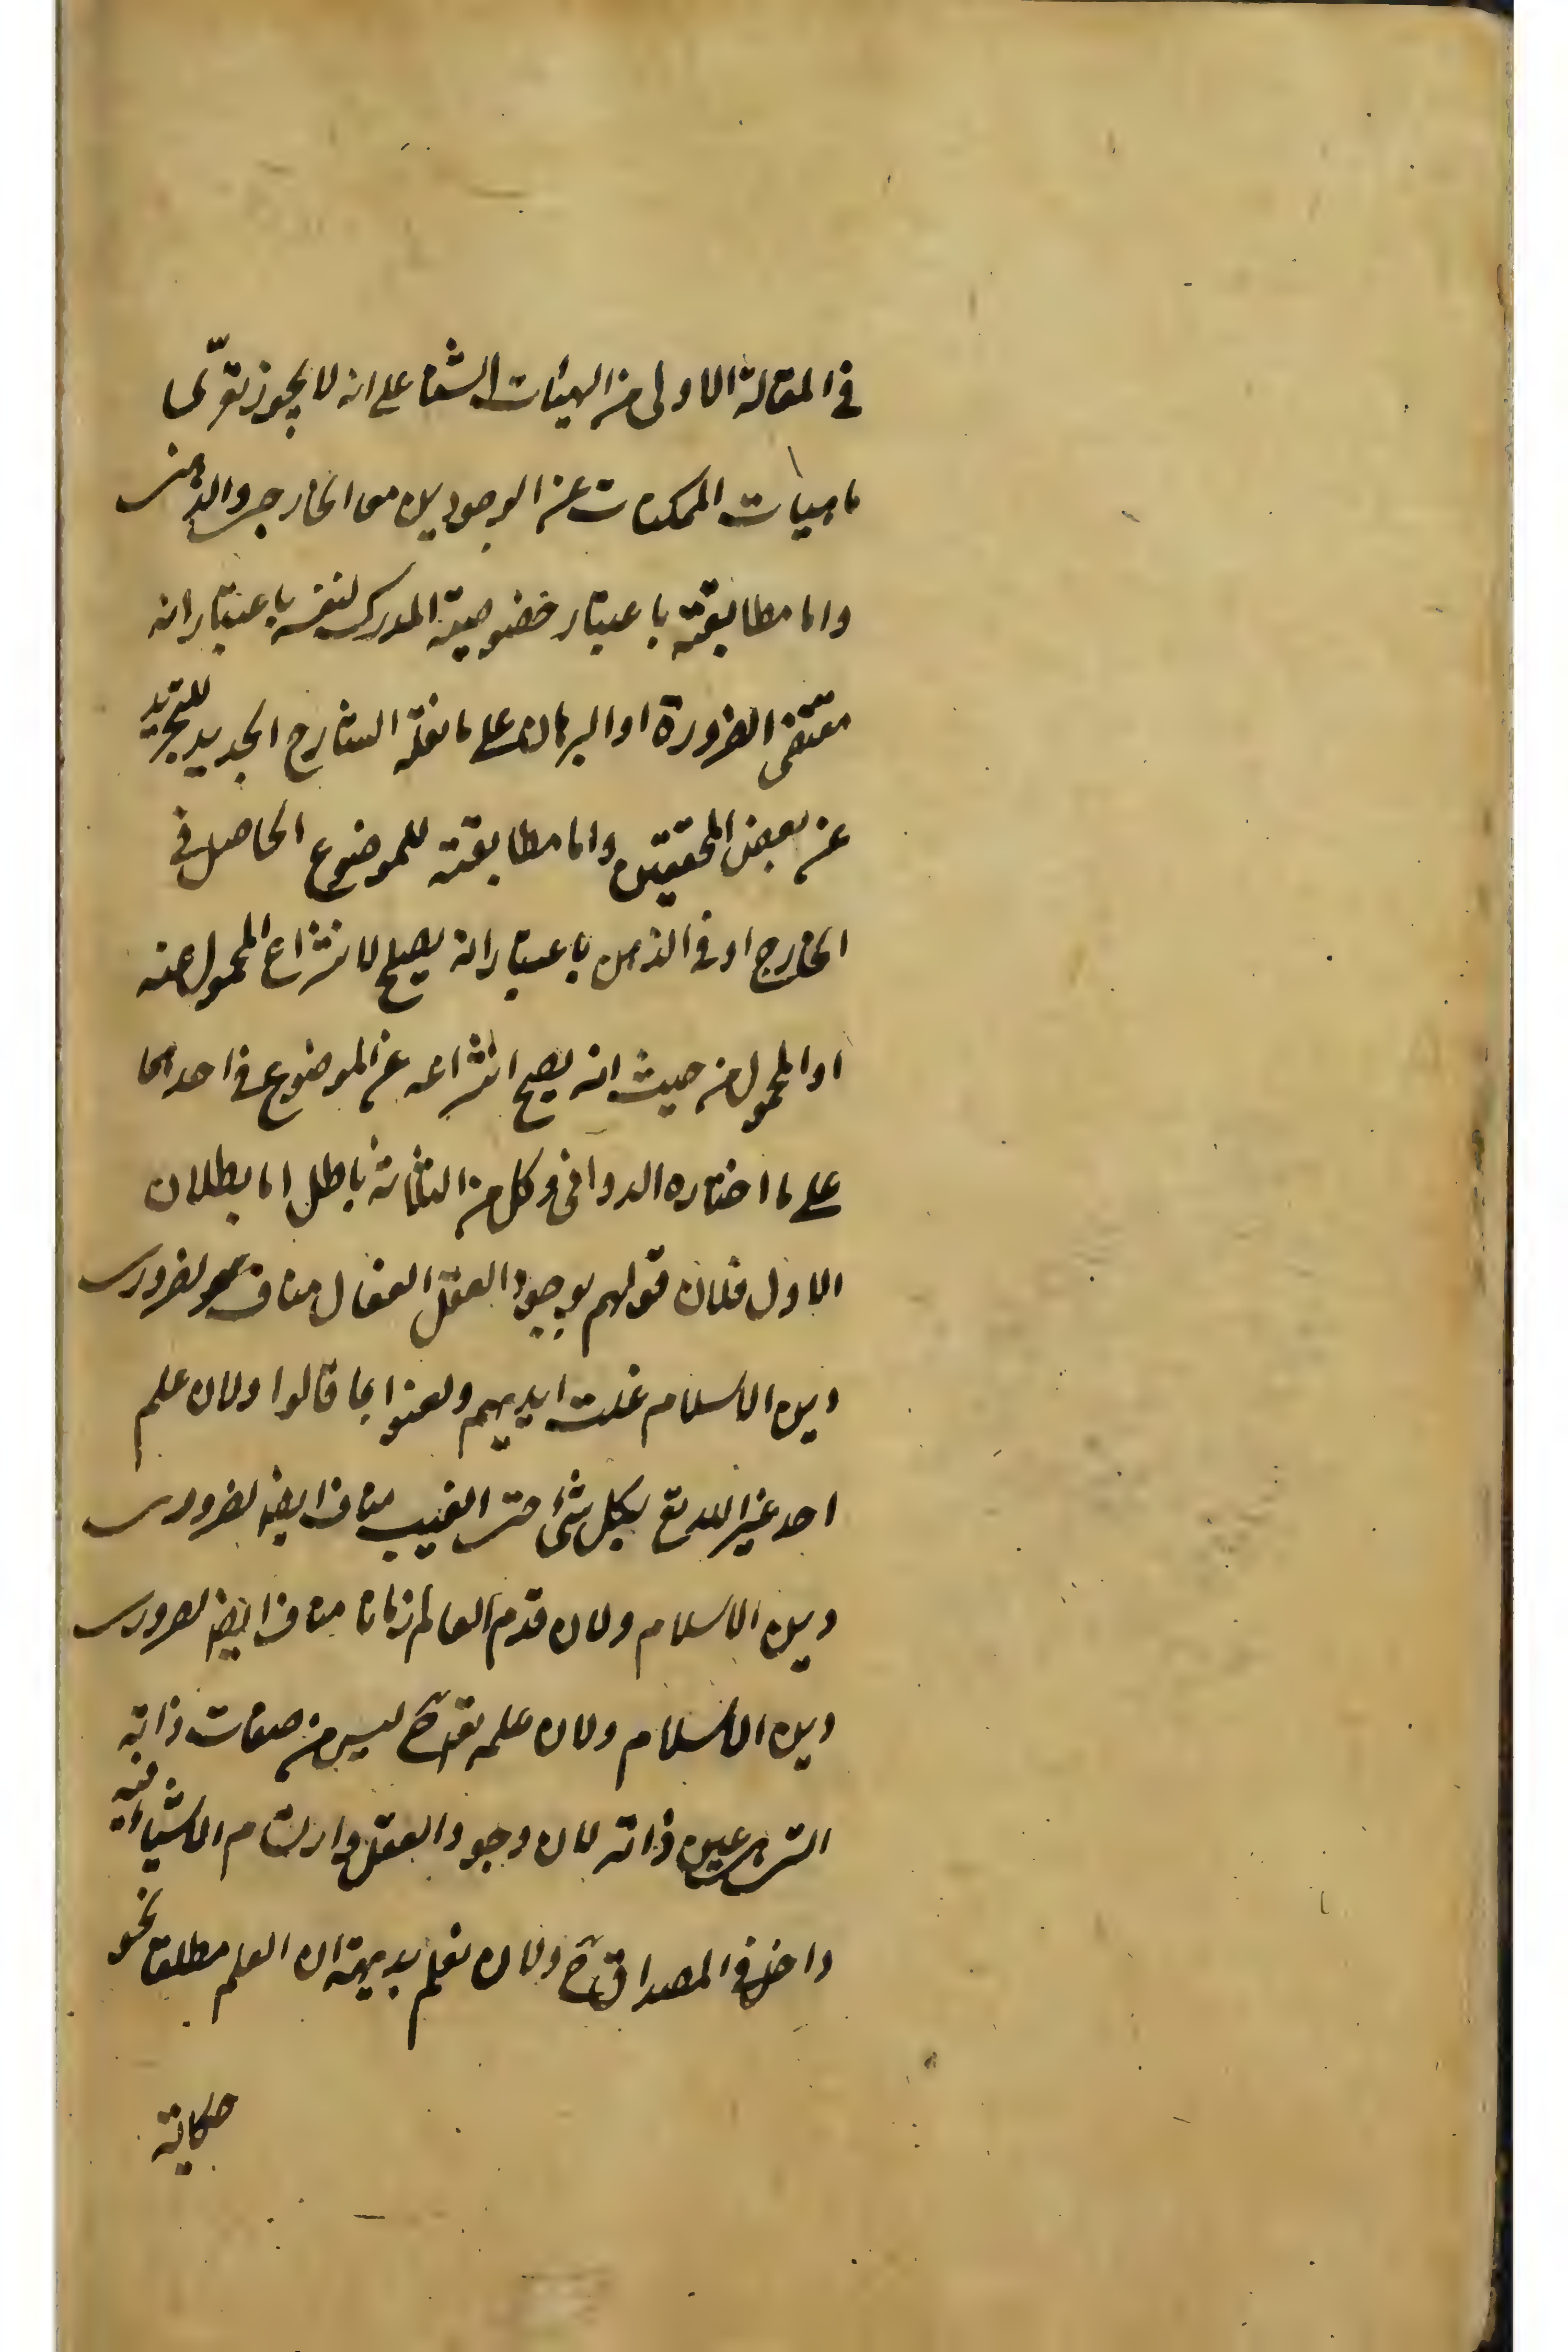 في المقالة الاولى من الهيات الشفا على انه لا يجوز تعرّى
ماهيات الممكنات عن الوجودين معا الخارجى والذهنى
واما مطابقته باعتبار خصوصية المدرك لنفسه باعتبار انه
مقتضى الضرورة او البرهان على ما نقله الشارح الجديد للتجريد
عن بعض المحققين واما مطابقته للموضوع الحاصل في
الخارج او في الذهن باعتبار انه يصلح لانتزاع المحمول عنه
او المحمول من حيث انه يصح انتزاعه عن الموضوع في احدهما
على ما اختاره الدوانى وكل من الثلثة باطل اما بطلان
الاول فلان قولهم بوجود العقل الفعال مناف لضرورى
دين الاسلام غلت ايديهم ولعنوا بما قالوا ولان علم
احد غير الله تع بكل شئ حتى الغيب مناف ايضا لضرورى
دين الاسلام ولان قدم العالم زمانا مناف ايضا لضرورى
دين الاسلام ولان علمه تع ح ليس من صفات ذاته
التى هى عين ذاته لان وجود العقل وارتسام الاشياء فيه
داخل في المصداق ح ولان نعلم بديهة ان العلم مطلقا نحو
حكاية